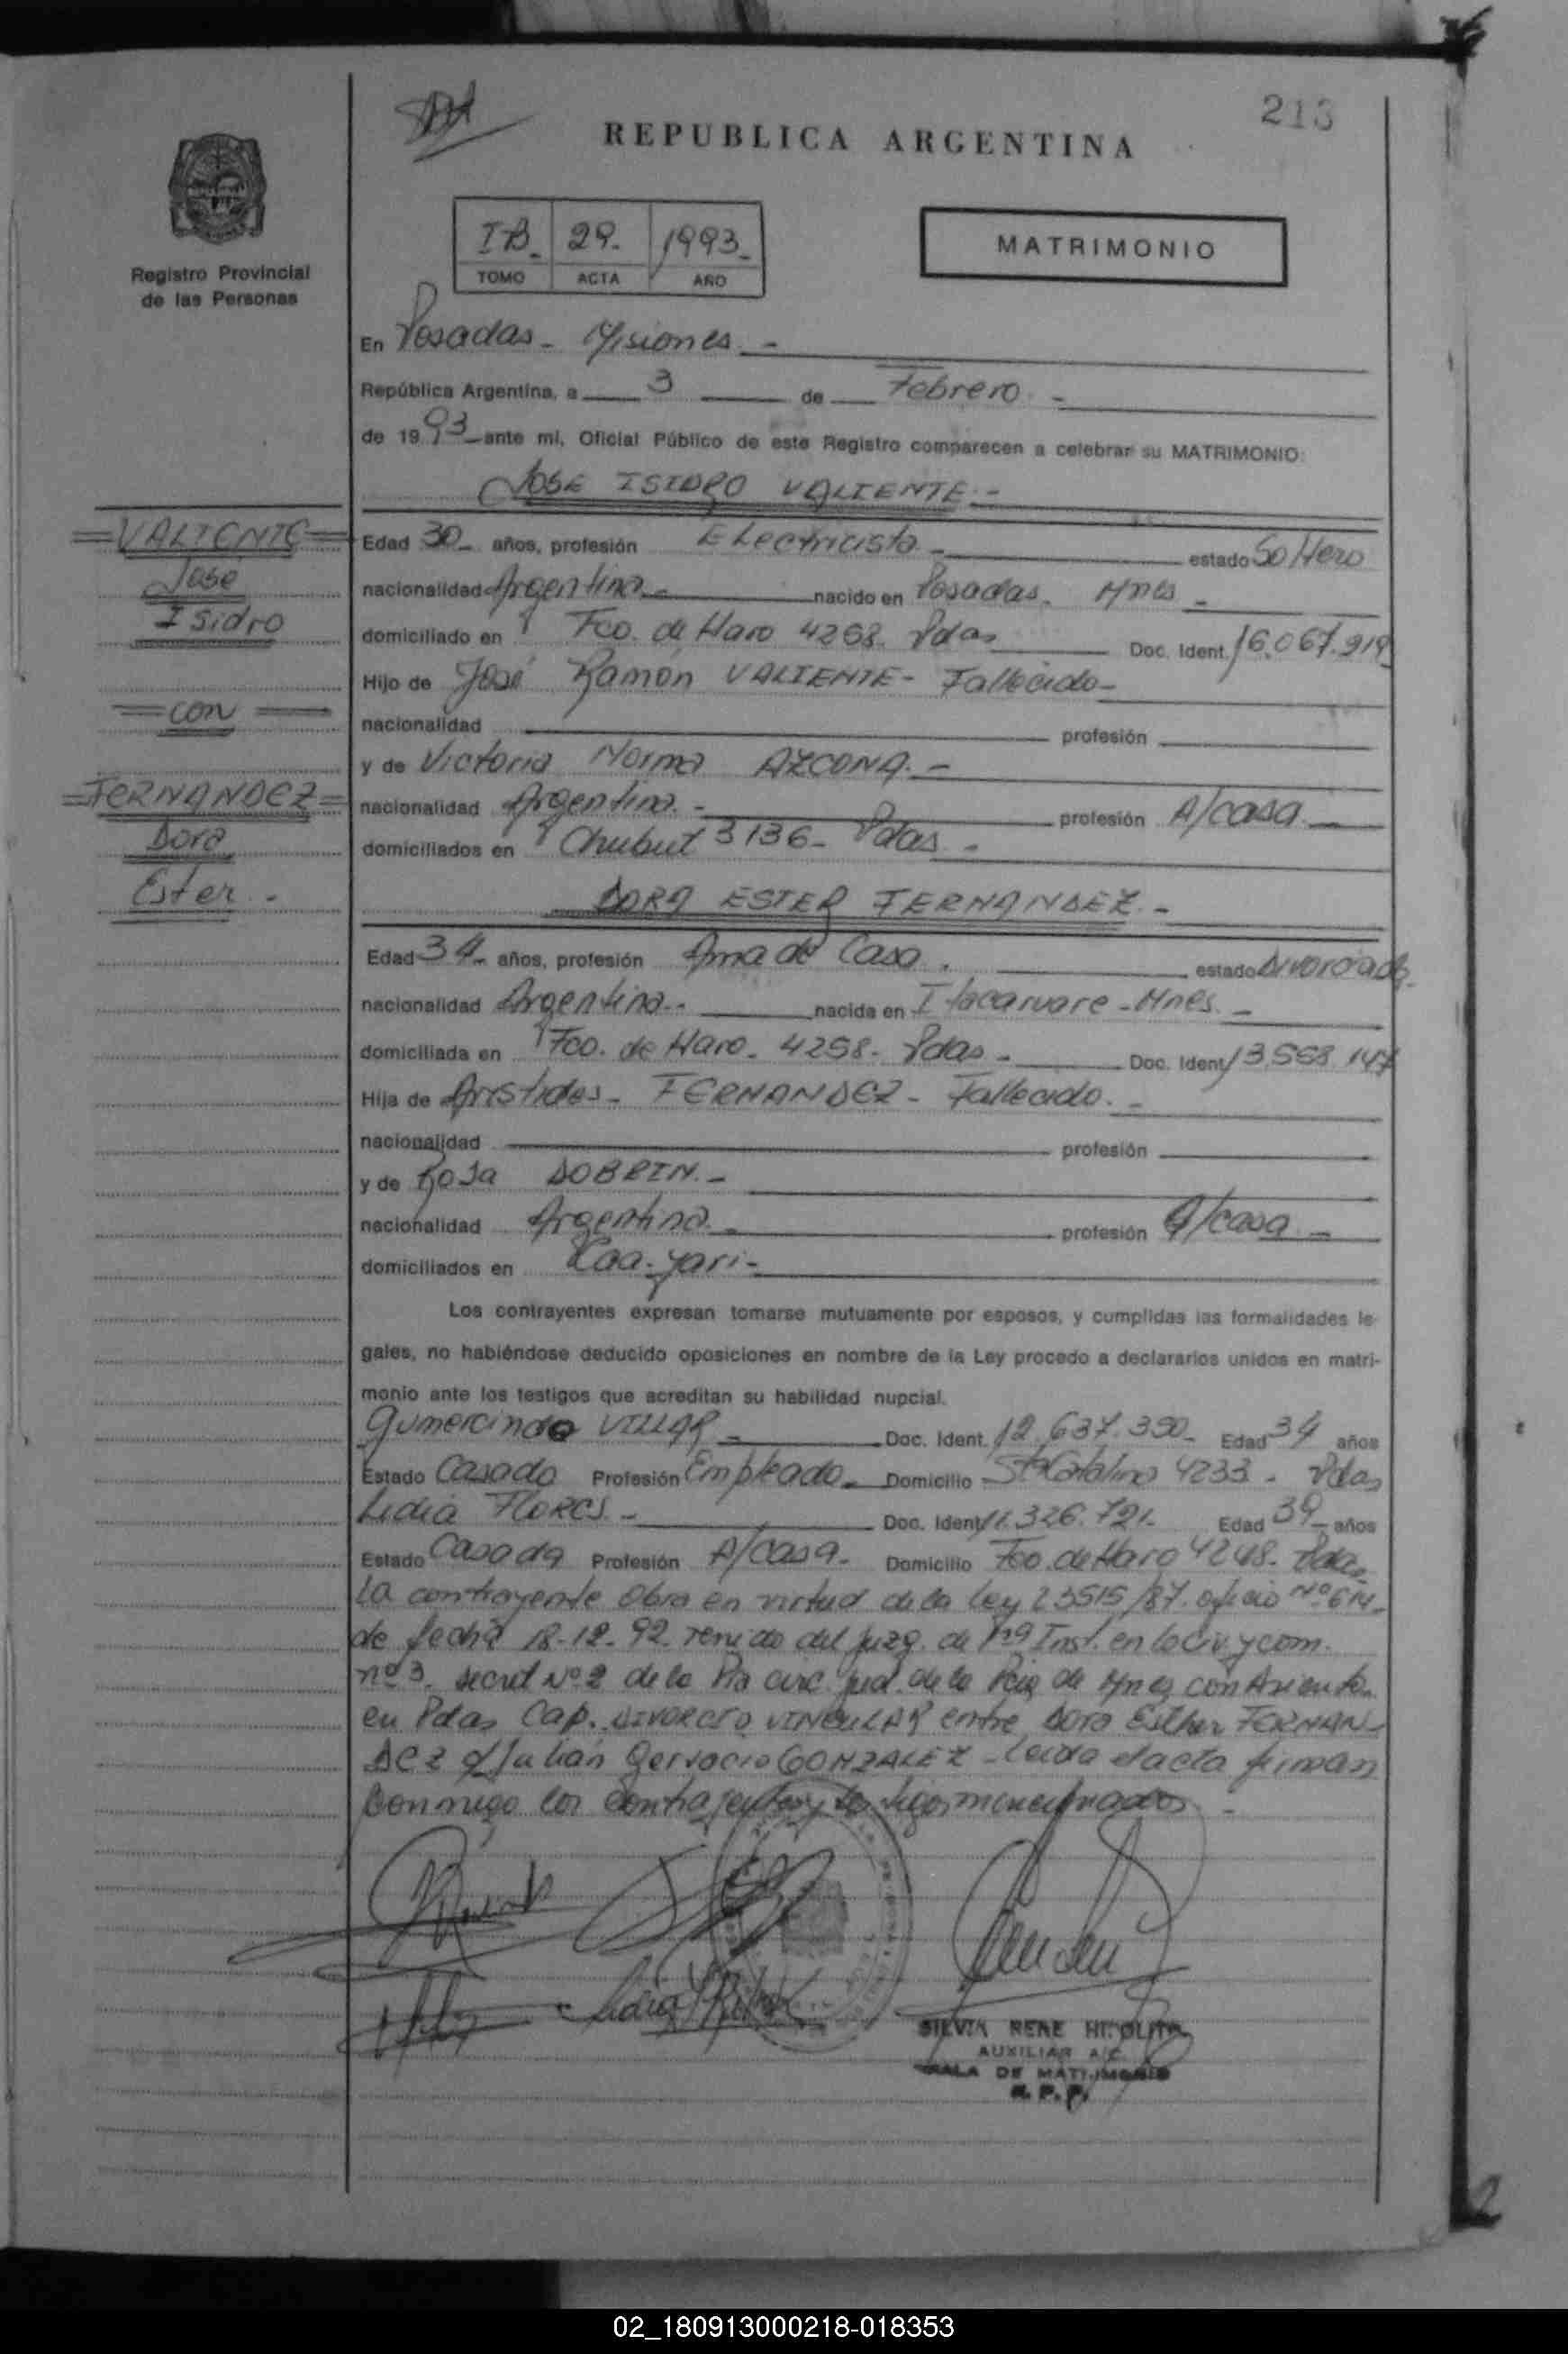 213
REPUBLICA ARGENTINA
Registro Provincial
de las Personas
I-B. 29. 1993.
TOMO ACTA AÑO
MATRIMONIO
En Posadas - Misiones. -
República Argentina, a 3 de Febrero. -
de 19 93 ante mi, Oficial Público de este Registro comparecen a celebrar su MATRIMONIO:
JOSE ISIDRO VALIENTE. -
=VALIENTE=
José
Isidro
= CON =
=FERNANDEZ=
Dora
Ester. -
Edad 30 años, profesión Electricista - estado Soltero
nacionalidad Argentina. - nacido en Posadas. Mnes -
domiciliado en Fco. de Haro 4258. Pdas Doc. Ident. 16.067.919
Hijo de José Ramón VALIENTE - Fallecido -
nacionalidad profesión
y de Victoria Norma AZCONA. -
nacionalidad Argentina. - profesión A/casa. -
domiciliados en Chubut 3136 - Pdas -
DORA ESTER FERNANDEZ. -
Edad 34 años, profesión Ama de Casa. estado divorciada.
nacionalidad Argentina. - nacida en Itacaruare - Mnes. -
domiciliada en Fco. de Haro. 4258 - Pdas - Doc. Ident. 13.558.147
Hija de Aristides - FERNANDEZ - Fallecido. -
nacionalidad profesión
y de Rosa DOBRIN. -
nacionalidad Argentina. profesión A/casa. -
domiciliados en Caa-yari -
Los contrayentes expresan tomarse mutuamente por esposos, y cumplidas las formalidades le-
gales, no habiéndose deducido oposiciones en nombre de la Ley procedo a declararlos unidos en matri-
monio ante los testigos que acreditan su habilidad nupcial.
Gumercindo VILLAR - Doc. Ident. 12.637.390 - Edad 34 años
Estado Casado Profesión Empleado - Domicilio Sta Catalina 4233 - Pdas
Lidia FLORES. - Doc. Ident. 11.326.721. Edad 39 años
Estado Casada Profesión A/casa. Domicilio Fco. de Haro 4248. Pdas
La contrayente obra en virtud de la Ley 23515/87. oficio Nº 614
de fecha 18-12-92 remido del juzg. de 1ra Inst. en lo civ. y com.
nº 3. secret Nº 2 de la 1ra circ. jud. de la Pcia de Mnes con Asiento
en Pdas Cap. DIVORCIO VINCULAR entre Dora Esther FERNAN-
DEZ c/ Julián Gervacio GONZALEZ - Leída el acta firman
conmigo los contrayentes y testigos mencionados. -
SILVIA RENE HIPOLITA
AUXILIAR A/C.
SALA DE MATRIMONIO
R. P. P.
02_180913000218-018353